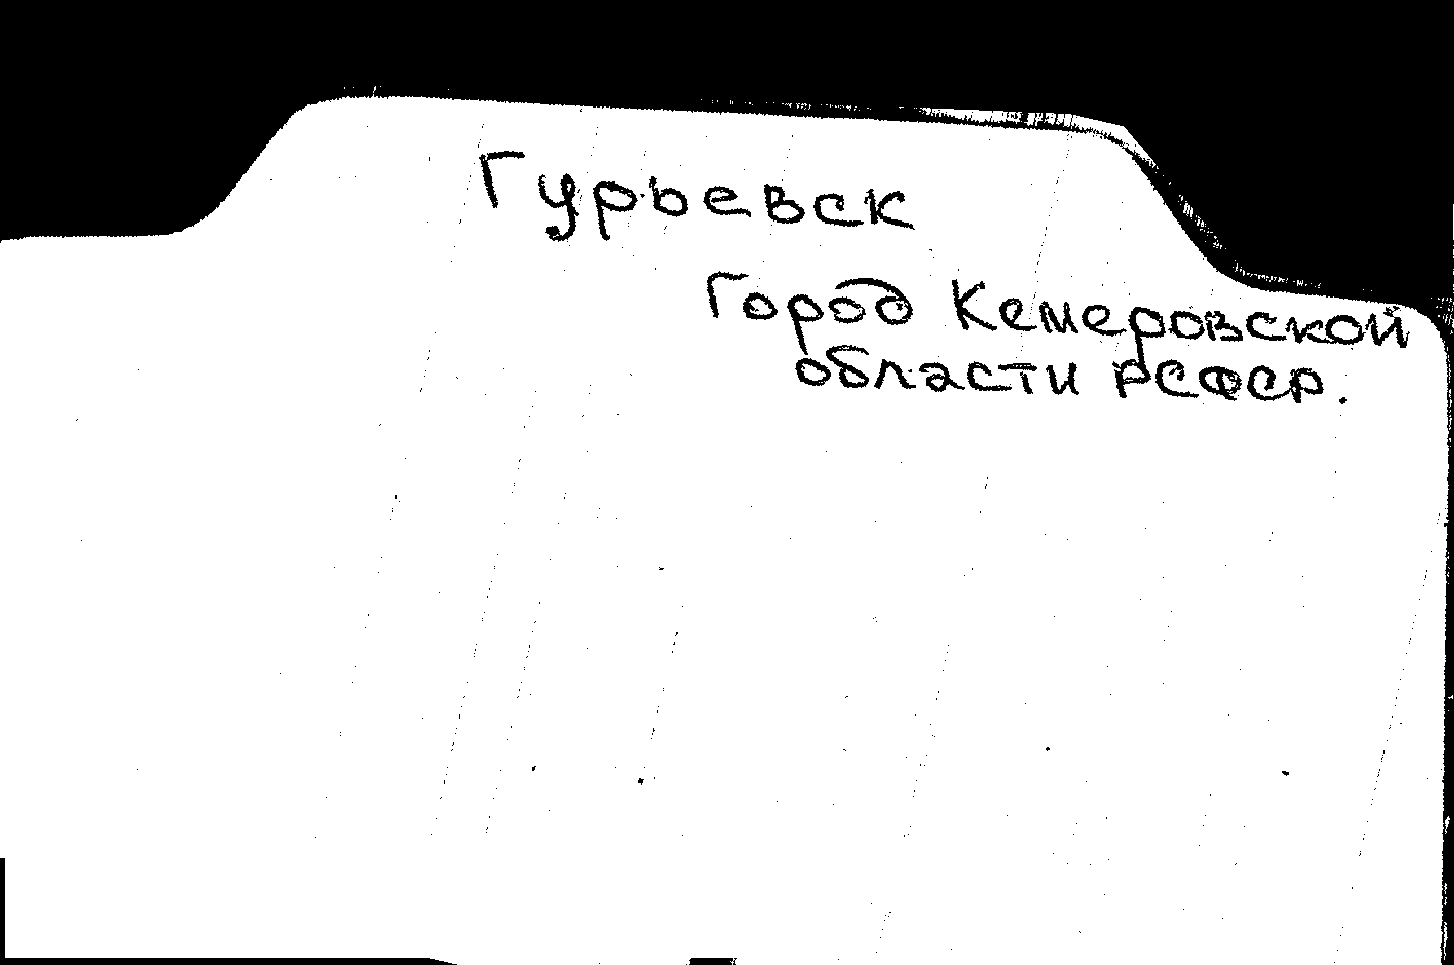 Гурьевск
Город Кемеровской
области РСФСР.